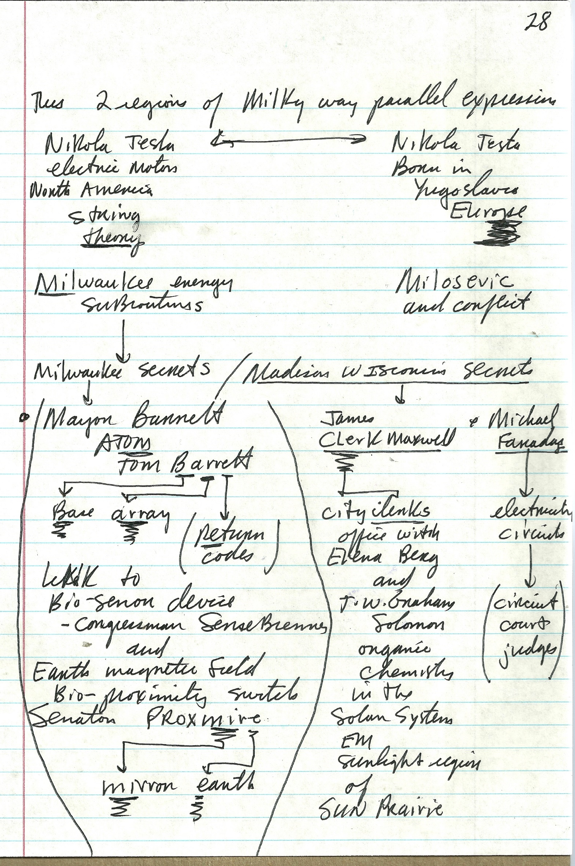 28
Thus 2 regions of Milky way parallel expression
Nikola Tesla
electric motors
North America
string
theory
Nikola Tesla
Born in
Yugoslavia
Europe
Milwaukee energy
subroutines
Milosevic
and conflict
Milwaukee secrets / Madison Wisconsin secrets
Mayor Barrett
ATOM
Tom Barrett
Base array
(return
codes)
Link to
Bio-sensor device
- Congressman SenseBrenner
and
Earth magnetic field
Bio-proximity switch
Senator PROXmire
mirror earth
James
Clerk Maxwell
city clerks
office with
Elena Berg
and
T.W. Graham
Solomon
organic
chemistry
in the
Solar System
EM
sunlight region
of
SUN Prairie
& Michael
Faraday
electricity
circuits
(circuit
court
judges)